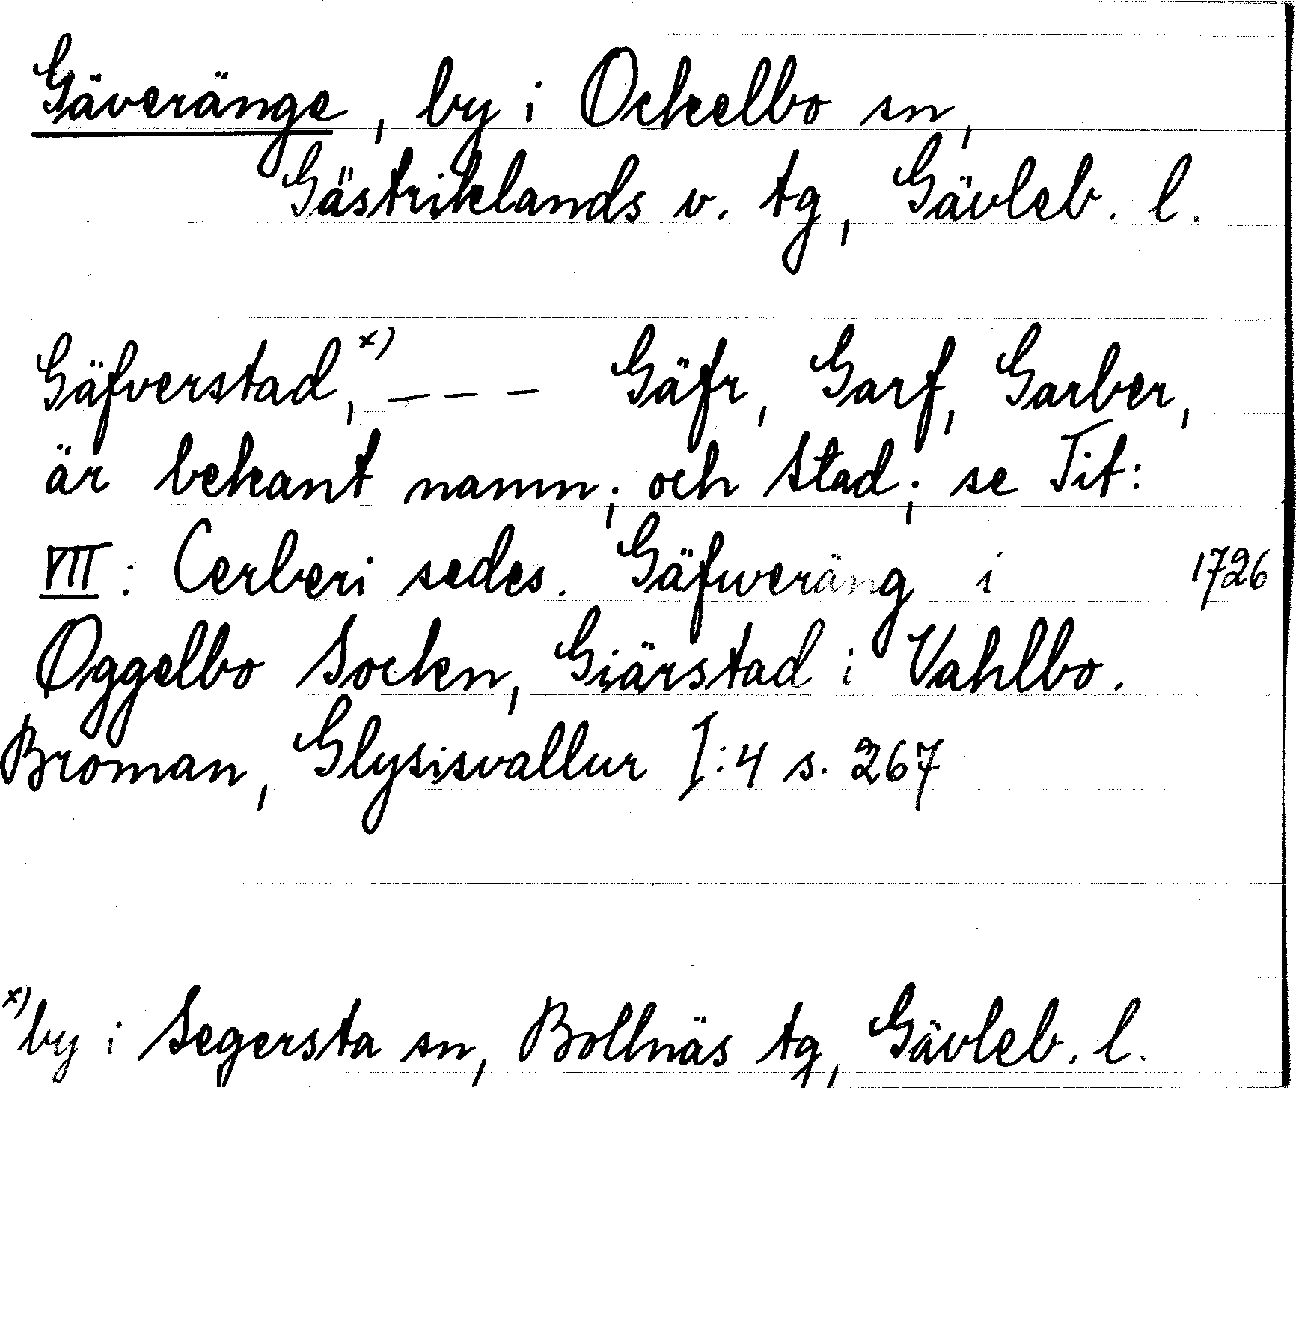 Gäveränge, by i Ockelbo sn,
Gästriklands v. tg, Gävleb. l.
Gäfverstad,x) – – – Gäfr, Garf, Garber,
är bekant namn; och Stad; se Tit:
VII: Cerberi sedes. Gäfweräng i 1726
Oggelbo Socken, Giärstad i Vahlbo.
Broman, Glysisvallur I:4 s. 267
x) by i Segersta sn, Bollnäs tg, Gävleb. l.